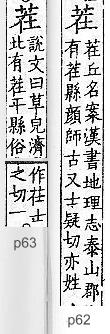 茬
茬丘名案漢書地理志泰山郡
有茬縣顏師古又士疑切亦姓
p62
茬
說文曰草皃濟
北有茬平縣俗
作茌士
之切一
p63